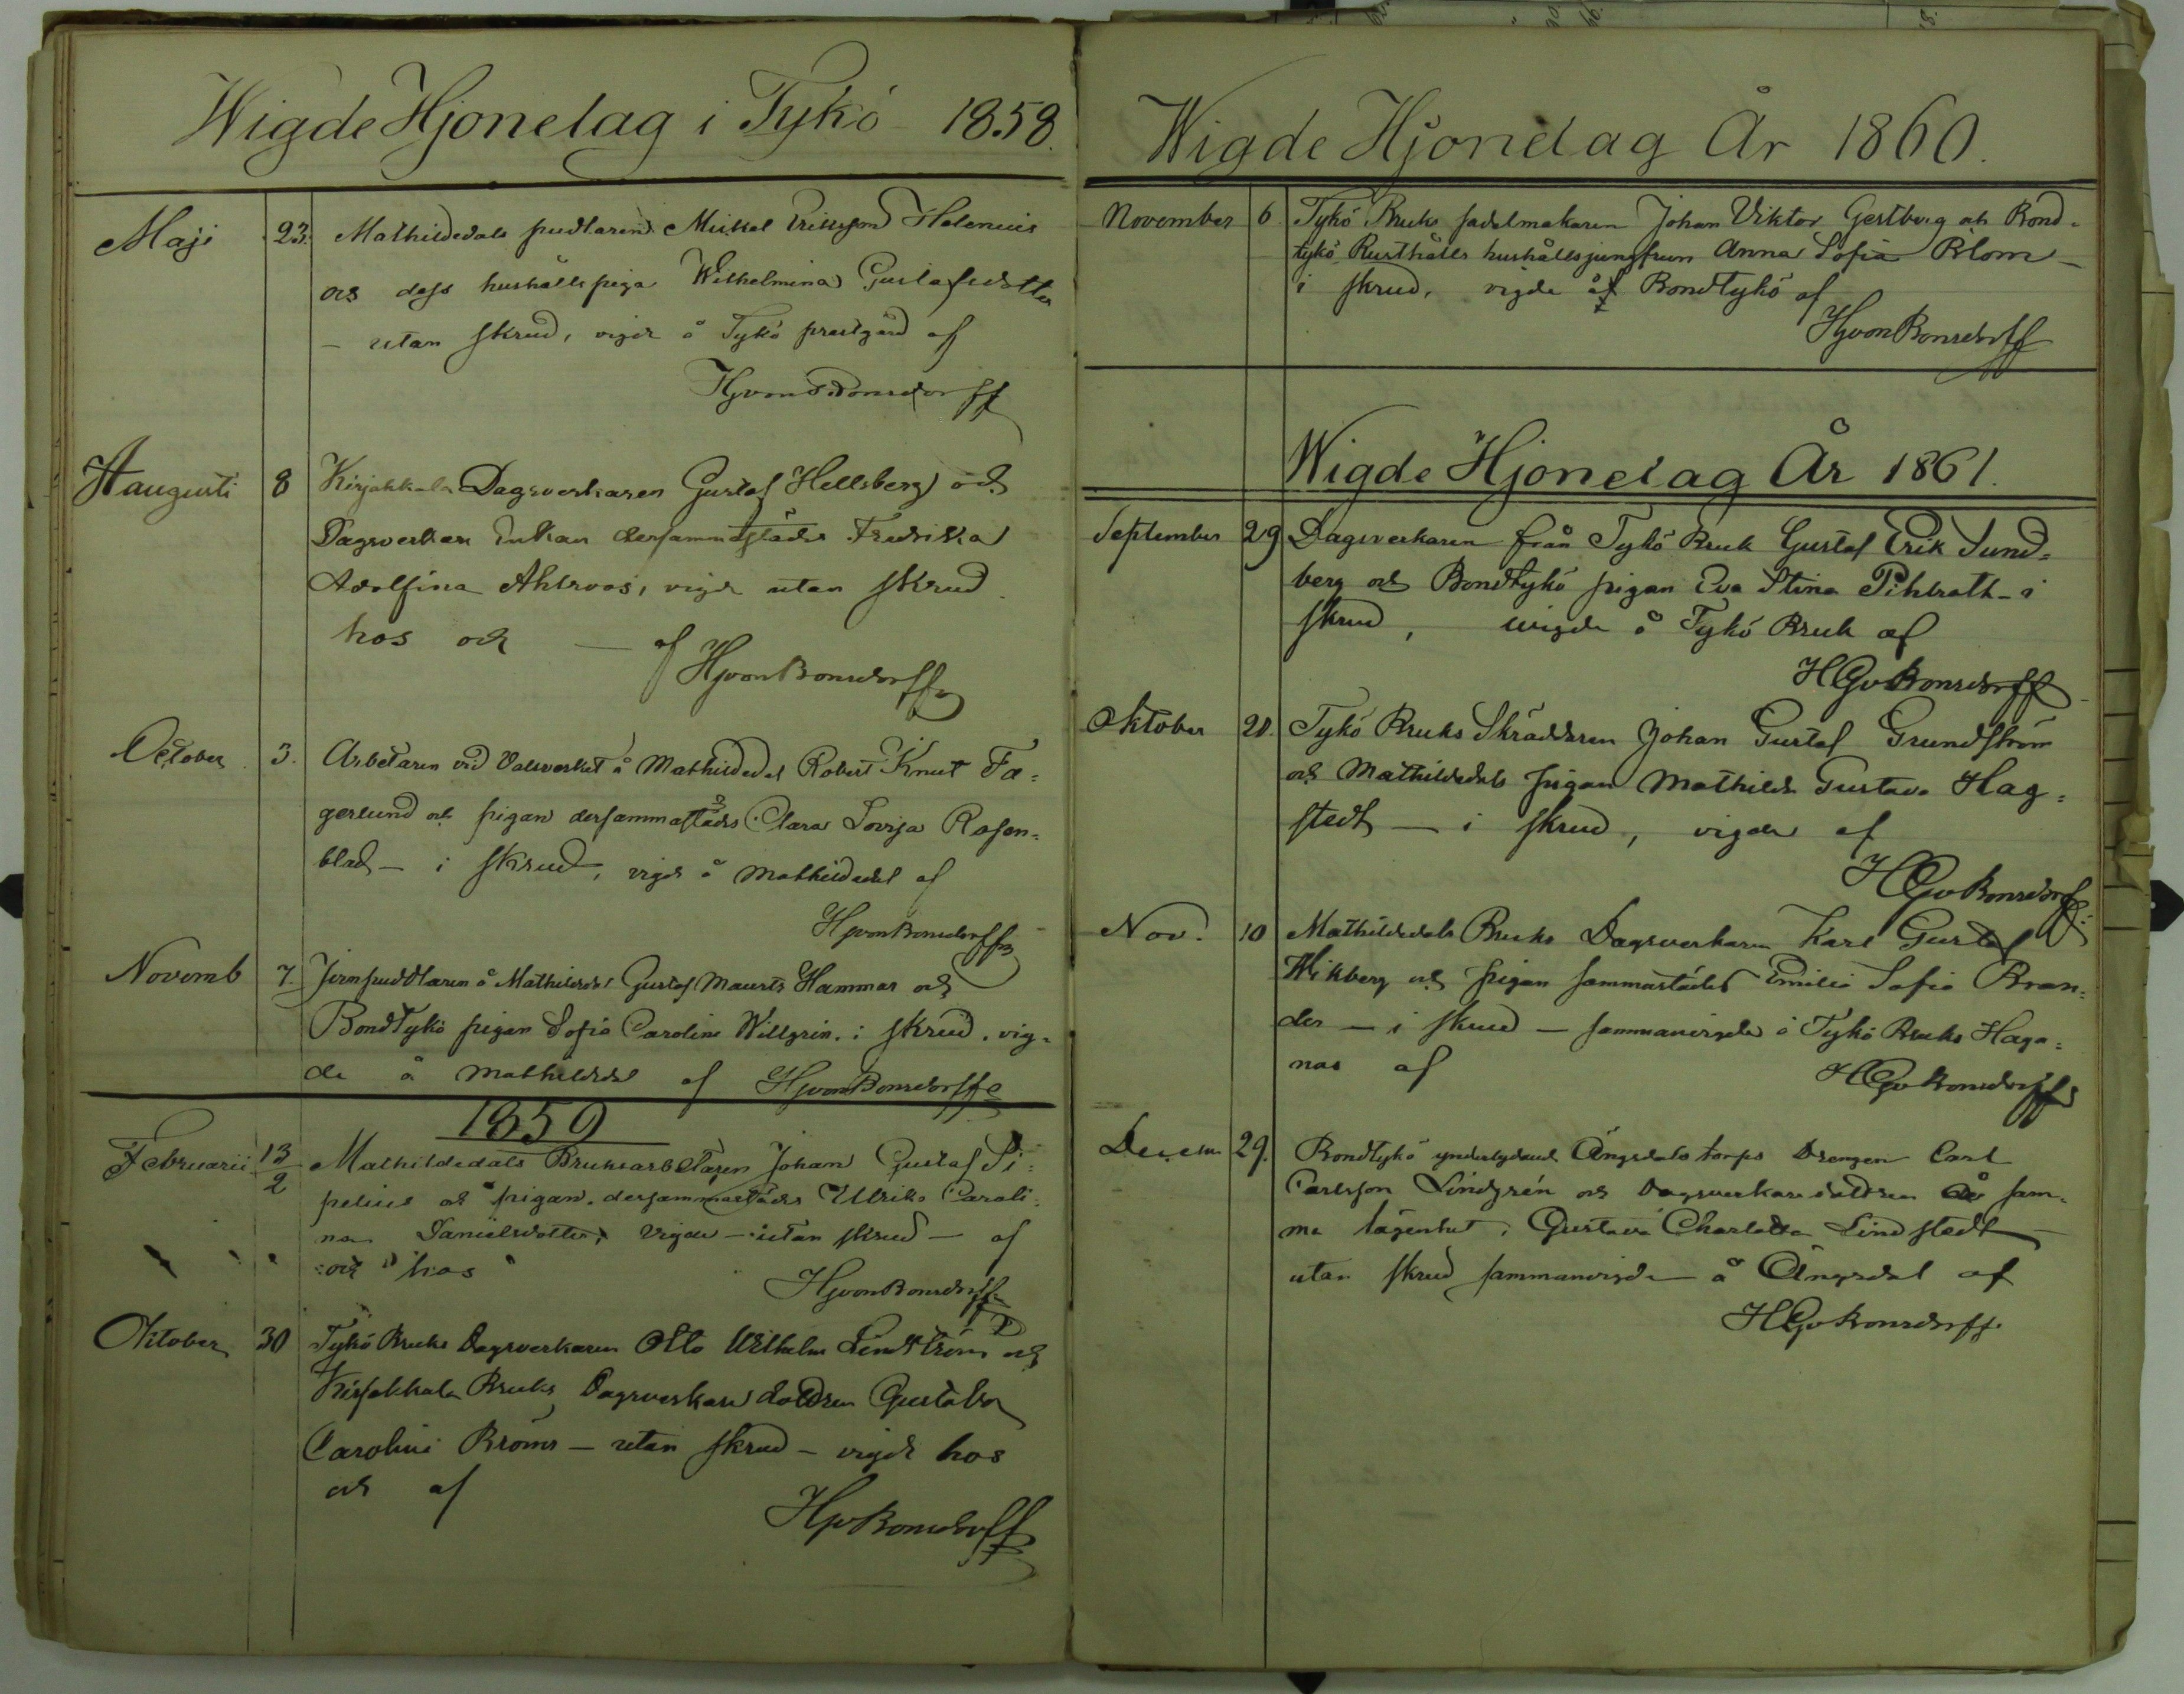 Wigde Hjonelag i Tykö 1858.
Maji 23. Mathildedals pudlaren Mickel Ericsson Helenius
och dess hushålls piga Wilhelmina Gustafsdotter
– utan skrud, vigde å Tykö prestgård af
HGvonBonsdorff
Augusti 8 Kirjakkala Dagsverkaren Gustaf Hellsberg och
Dagsverkare Enkan dersammastädes Fredrika
Adolfina Ahlroos, vigde utan skrud
hos och — af HGvonBonsdorff
October 3. Arbetaren vid Valsverket å Mathildedal Robert Knut Fa=
gerlund och pigan dersammastädes Clara Lovisa Rosen=
blad – i skrud, vigde å Mathildedal af
HGvonBonsdorff
Novemb 7. Jernpuddlaren å Mathildedal Gustaf Maurits Hammar och
BondTykö pigan Sofia Carolina Willgrén. i skrud. vig=
de å Mathildedal af HGvonBonsdorff
1859
Februarii 13/2 Mathildedals Bruksarbetaren Johan Gustaf Si=
pelius och pigan dersammastädes Ulrika Caroli=
na Danielsdotter, vigde – utan skrud – af
och hos
HGvonBonsdorff
Oktober 30 Tykö Bruks Dagsverkaren Otto Wilhelm Lindström och
Kirjakkala Bruks Dagsverkare dottren Gustafva
Carolina Broms – utan skrud – vigde hos
och af
HGvBonsdorff
Wigde Hjonelag År 1860.
November 6 Tykö Bruks sadelmakaren Johan Viktor Gestberg och Bond=
tykö Rusthålls hushållsjungfrun Anna Sofia Blom –
i skrud, vigde å BondTykö af
HGvonBonsdorff
Wigde Hjonelag År 1861.
September 29 Dagsverkaren från Tykö Bruk Gustaf Erik Sund=
berg och BondTykö pigan Eva Stina Pihlrath – i
skrud, wigde å Tykö Bruk af
HGvBonsdorff
Oktober 20. Tykö Bruks Skräddaren Johan Gustaf Grundström
och Mathildedals pigan Mathilda Gustava Hag=
stedt — i skrud, vigde af
HGvBonsdorff
Nov. 10 Mathildedals Bruks Dagsverkaren Karl Gustaf
Wikberg och pigan sammastädes Emilia Sofia Bran=
der – i skrud – sammanvigde å Tykö Bruks Haga=
nas af
HGvBonsdorff
Decem 29. Bondtykö underlydande Ängsdals torps Drengen Carl
Carlsson Lindgrén och Dagsverkare dottren å sam=
ma lägenhet, Gustava Charlotta Lindstedt
utan skrud sammanvigde å Ängsdal af
HGvBonsdorff.